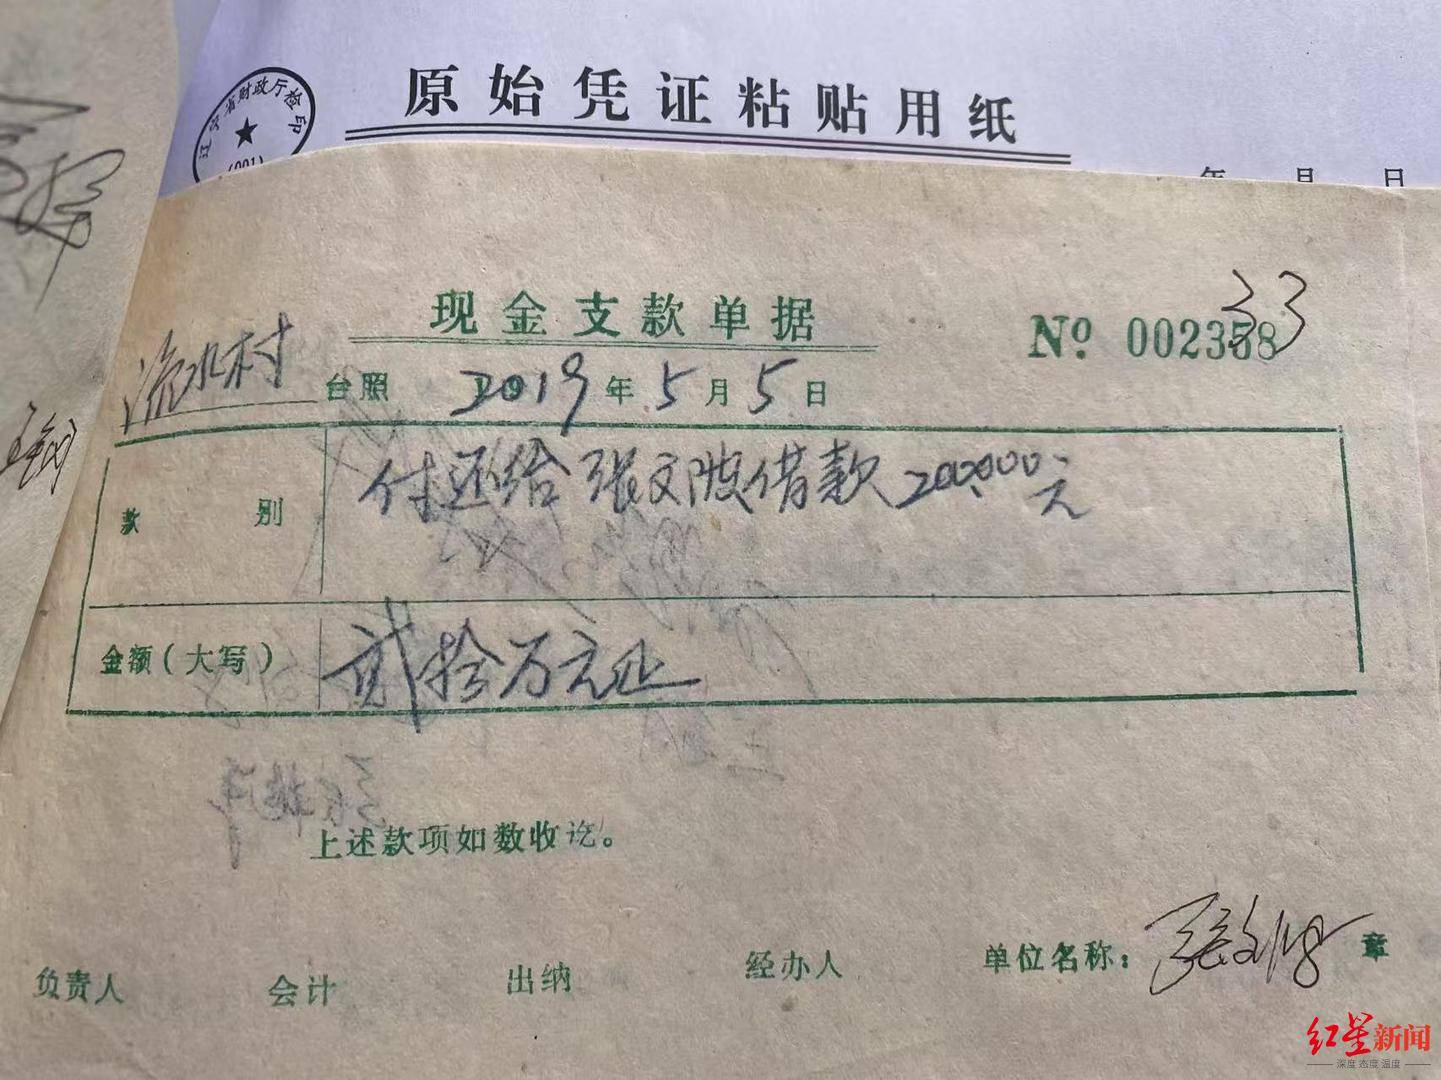 辽宁省财政厅检印
(001)
原始凭证粘贴用纸
年 月 日
现金支款单据
№ 002358
33
流水村 台照 2019年5月5日
款别 付还给张文波借款200000元
金额(大写) 贰拾万元正
上述款项如数收讫。
负责人 会计 出纳 经办人 单位名称: 张文波 章
红星新闻
深度 态度 温度